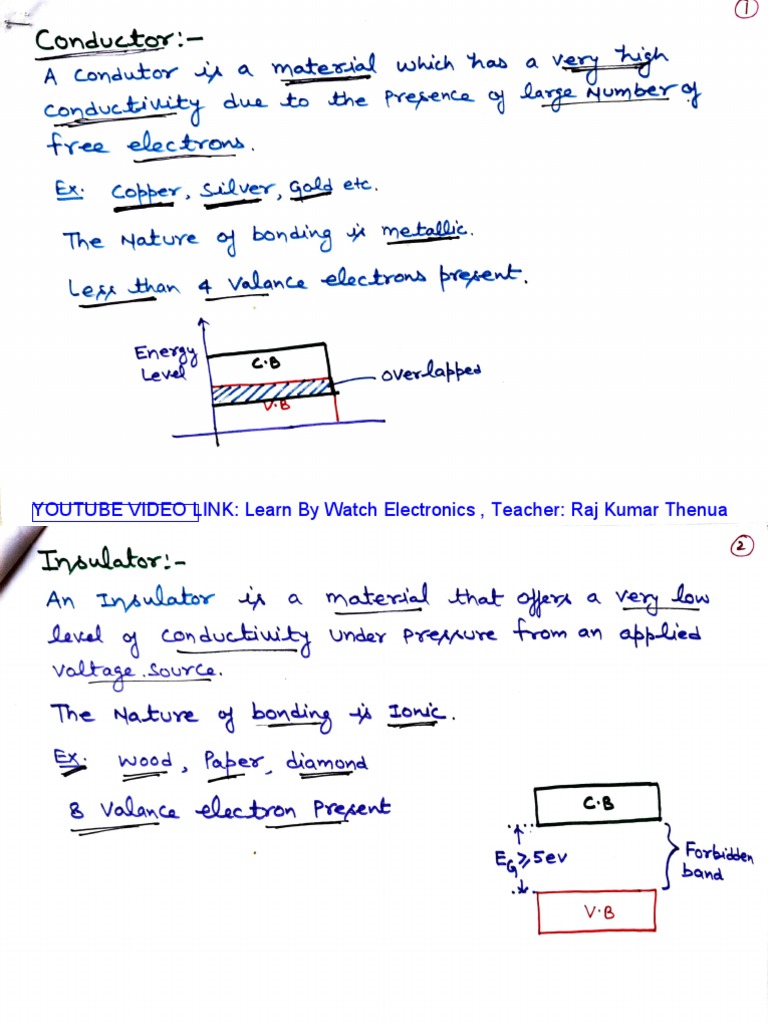 1
Conductor:-
A condutor is a material which has a very high
conductivity due to the presence of large number of
free electrons.
Ex. Copper, Silver, Gold etc.
The Nature of bonding is metallic.
Less than 4 valance electrons present.
Energy
Level
C.B
overlapped
V.B
YOUTUBE VIDEO LINK: Learn By Watch Electronics , Teacher: Raj Kumar Thenua
2
Insulator:-
An Insulator is a material that offers a very low
level of conductivity under pressure from an applied
voltage source.
The Nature of bonding is Ionic.
Ex. wood, Paper, diamond
8 Valance electron Present
C.B
EG≥5ev
Forbidden
band
V.B